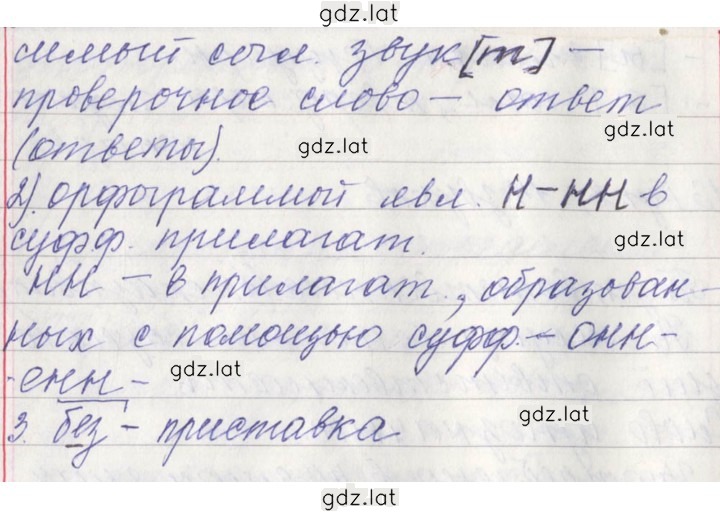 gdz.lat
симый согл. звук [т] –
проверочное слово – ответ
gdz.lat
(ответы).
gdz.lat
2) орфограммый явл. Н – НН в
суфф. прилагат.
gdz.lat
НН – в прилагат., образован-
ных с помощью суфф. – онн –
- енн –
gdz.lat
3. без – приставка
gdz.lat
gdz.lat